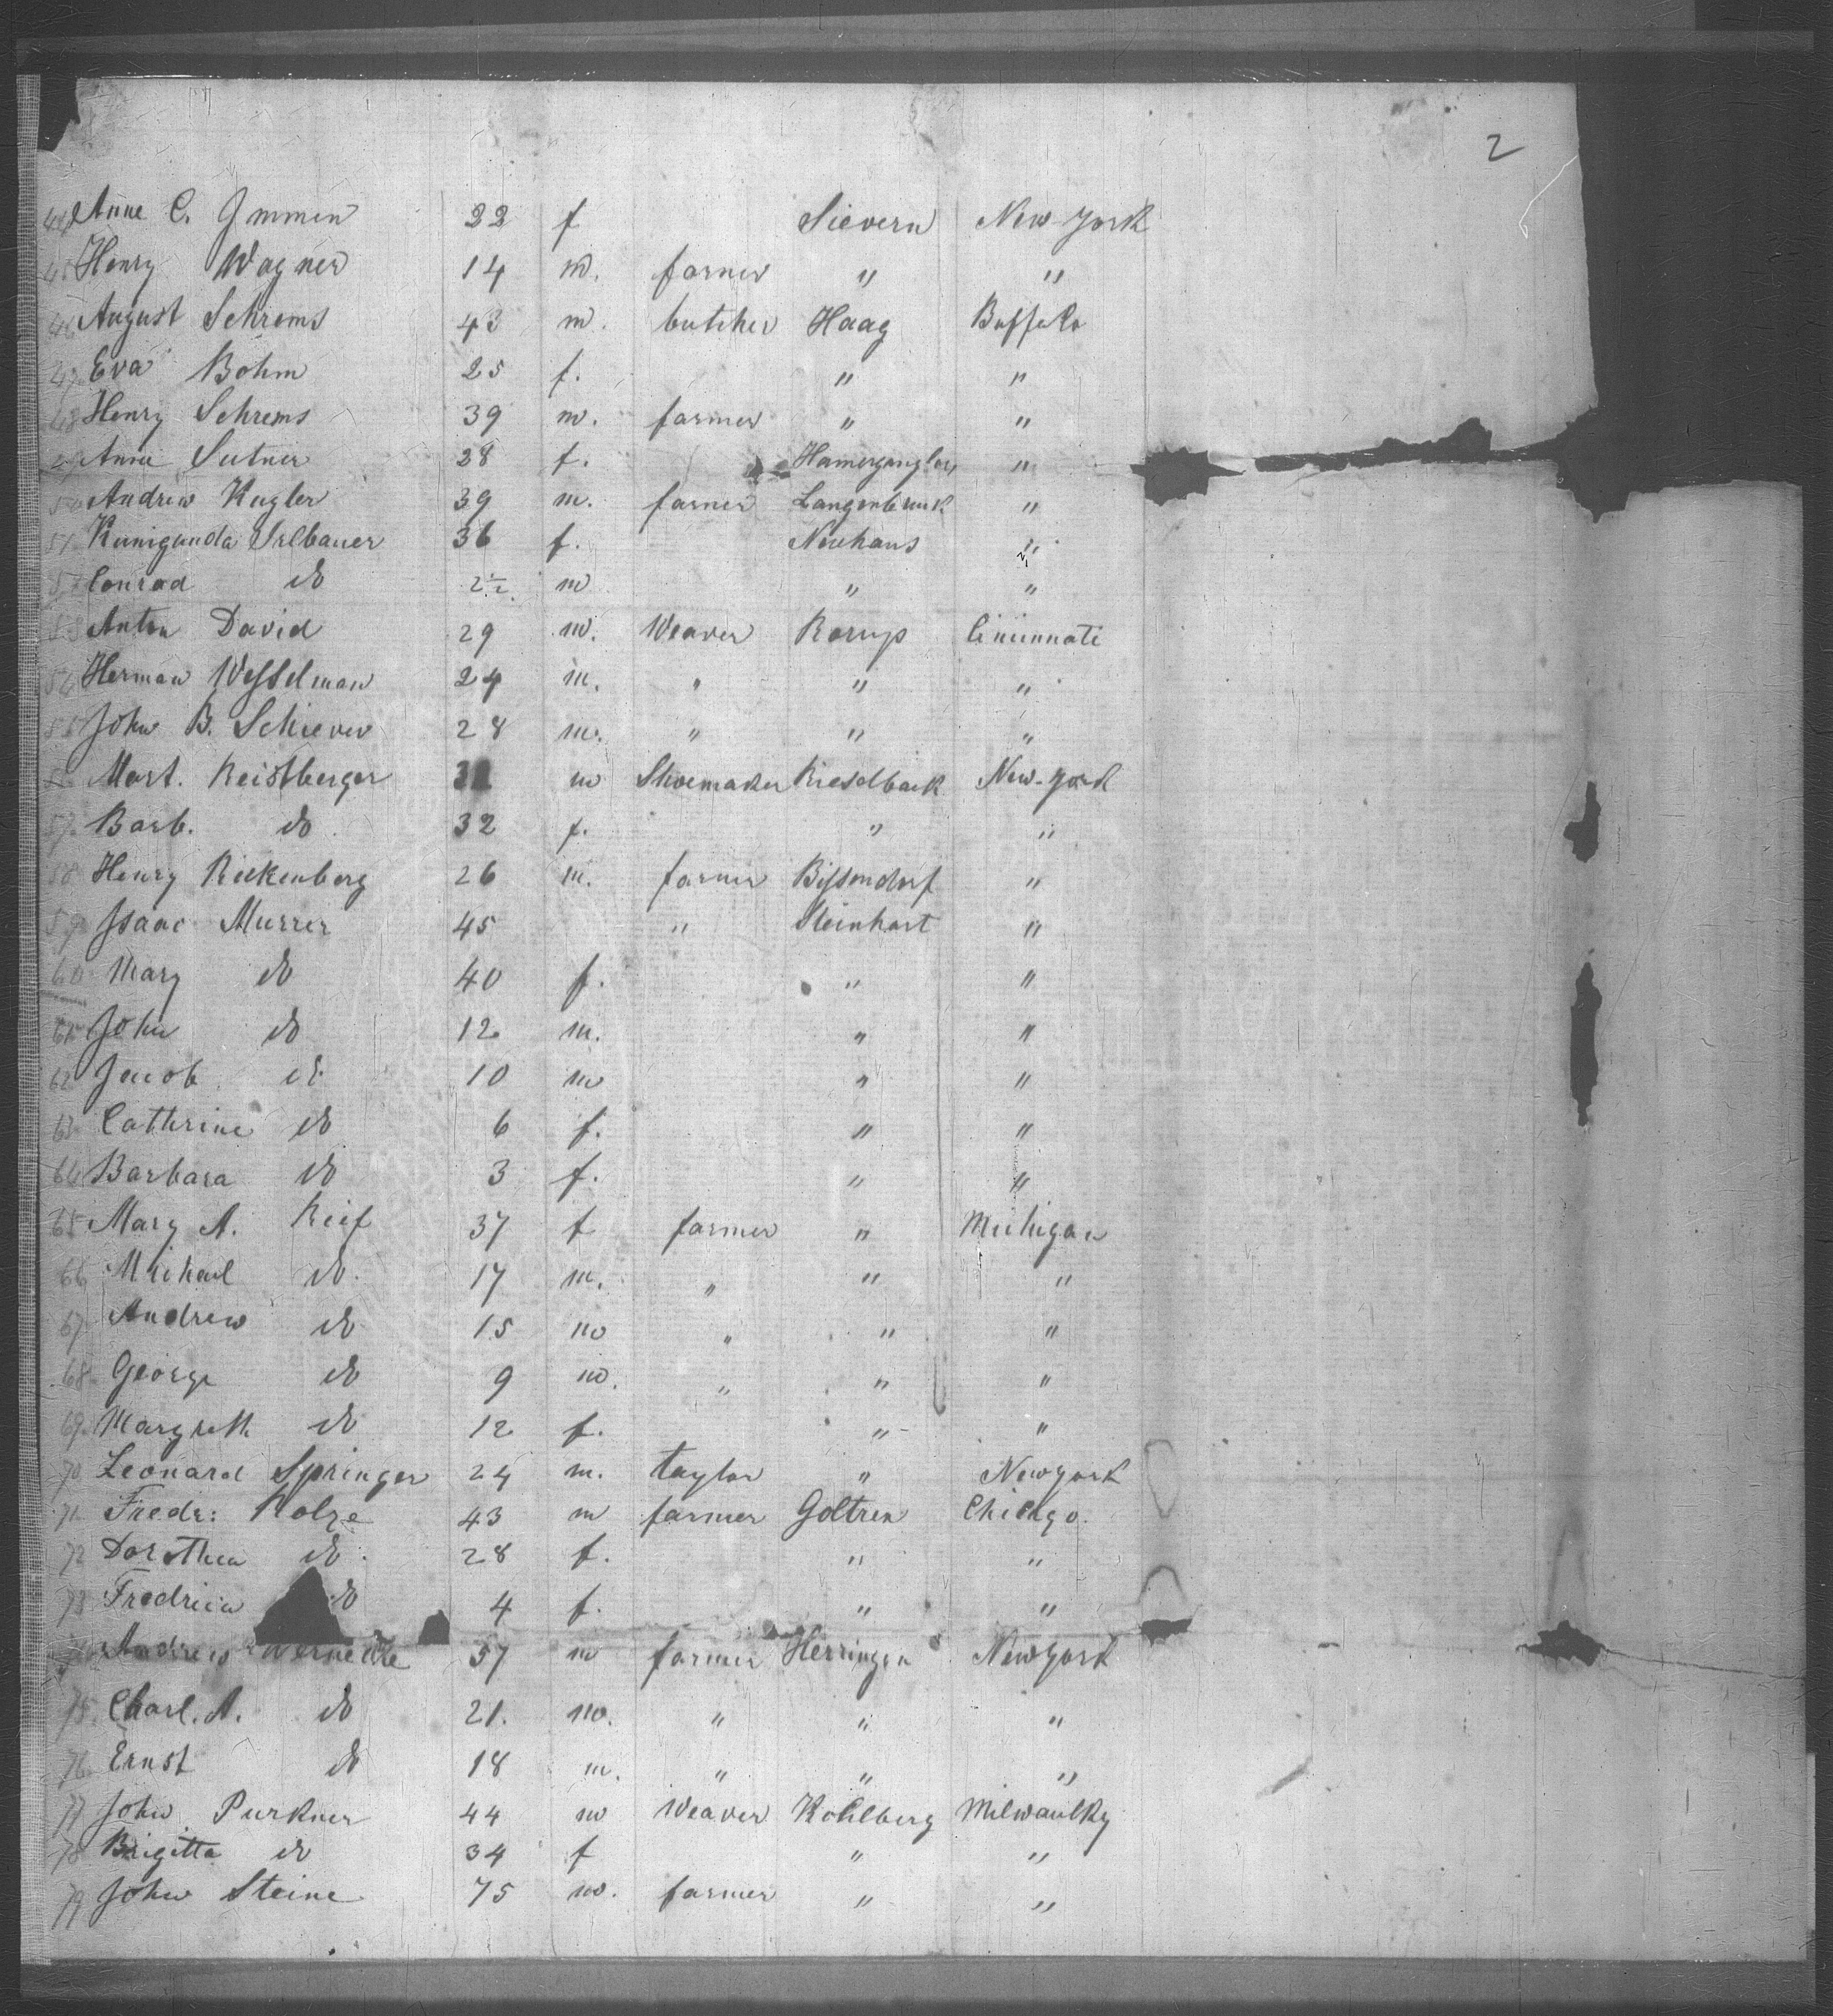 2
44 Anne C. Ommen 22 f Sievern New York
45 Henry Wagner 14 m. farmer " "
46 August Schrems 43 m. butcher Haag Buffalo
47 Eva Bohm 25 f. " "
48 Henry Schrems 39 m. farmer " "
49 Anna Sutner 28 f. "
50 Andrew Kugler 39 m. farmer Langenbruck "
51 Kunigunda Irlbauer 36 f. Neuhaus "
52 Conrad do 2½ m " "
53 Anton David 29 m. Weaver Rorup Cincinnati
54 Herman Wesselman 24 m. " " "
55 John B. Schiever 28 m. " " "
56 Mart. Reistberger m Shoemaker Rieselback New-York
57 Barb. do 32 f. " "
58 Henry Rickenberg 26 m. farmer Bissendorf "
59 Isaac Murrer 45 " Steinhart "
60 Mary do 40 f. " "
61 John do 12 m. " "
62 Jacob do 10 m " "
63 Cathrine do 6 f. " "
64 Barbara do 3 f. " "
65 Mary A. Reif 37 f farmer " Michigan
66 Michael do. 17 m. " " "
67 Andrew do 15 m " " "
68 George do 9 m. " " "
69 Margreth do 12 f. " "
70 Leonard Springer 24 m. taylor " New York
71 Fredr: Kolze 43 m farmer Goltren Chicago.
72 Dorothea do. 28 f. " "
73 Fredricia do 4 f. " "
74 Andrew Wernecke 57 m farmer Herringen New York
75 Charl. A. do 21. m. " " "
76 Ernst do 18 m. " " "
77 John Purkner 44 m Weaver Kohlberg Milwaulky
78 Brigitta do 34 f " "
79 John Steine 75 m. farmer " "